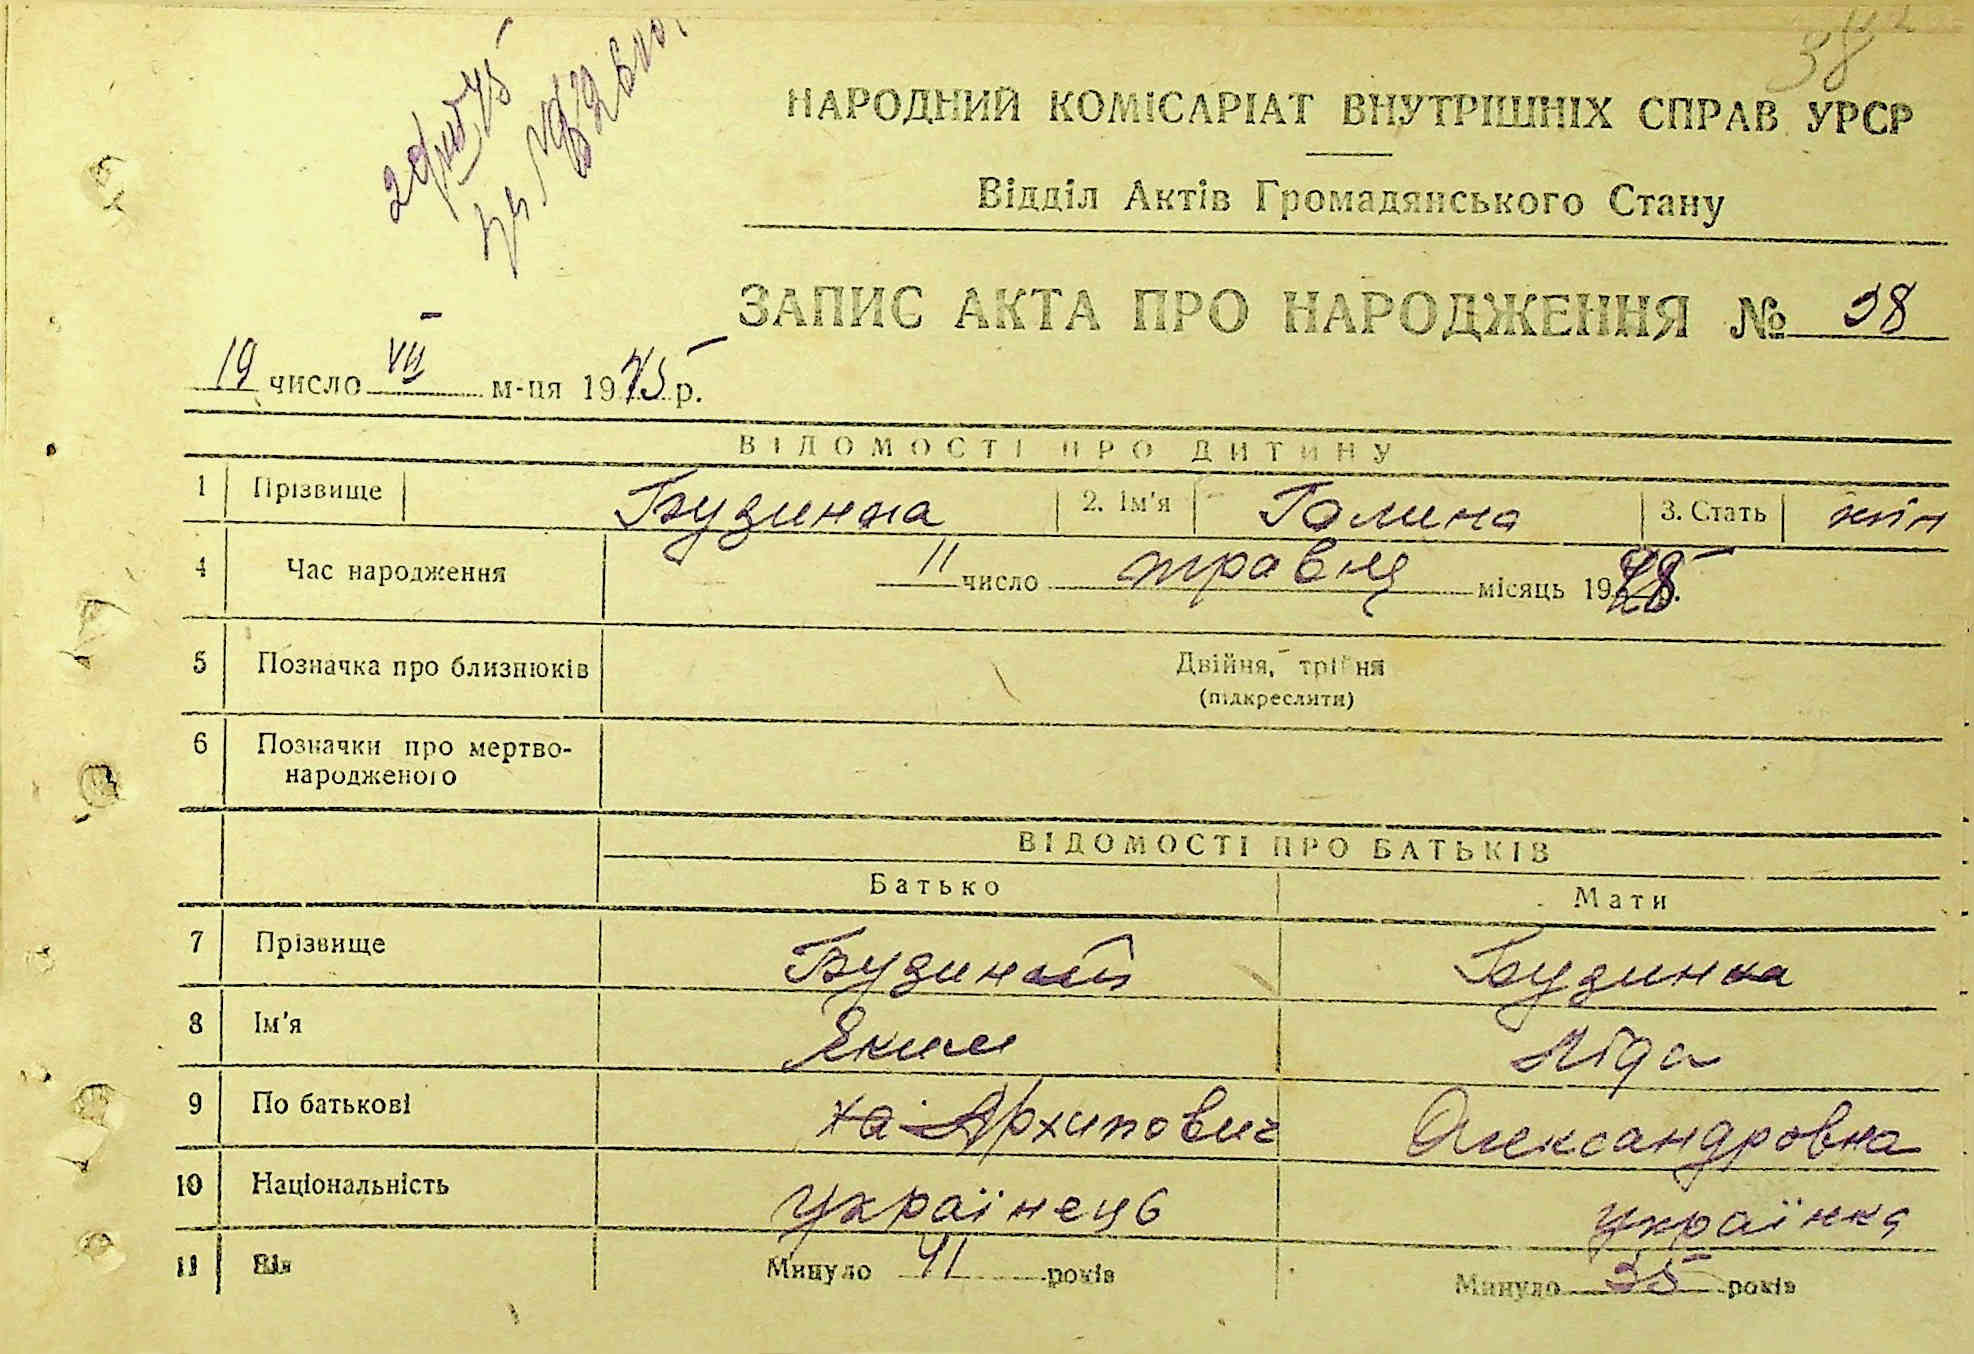 38
НАРОДНИЙ КОМІСАРІАТ ВНУТРІШНІХ СПРАВ УРСР
Відділ Актів Громадянського Стану
ЗАПИС АКТА ПРО НАРОДЖЕННЯ № 38
19 число VII м-ця 1945 р.
ВІДОМОСТІ ПРО ДИТИНУ
1 Прізвище Будинка 2. Ім'я Галина 3. Стать жін
4 Час народження 11 число травня місяць 1945 р.
5 Позначка про близнюків Двійня, трійня
(підкреслити)
6 Позначки про мертво-
народженого
ВІДОМОСТІ ПРО БАТЬКІВ
Батько Мати
7 Прізвище Будинка
8 Ім'я Яким Ліда
9 По батькові Архипович Олександровна
10 Національність українець українка
11 Вік Минуло 41 років Минуло 35 років